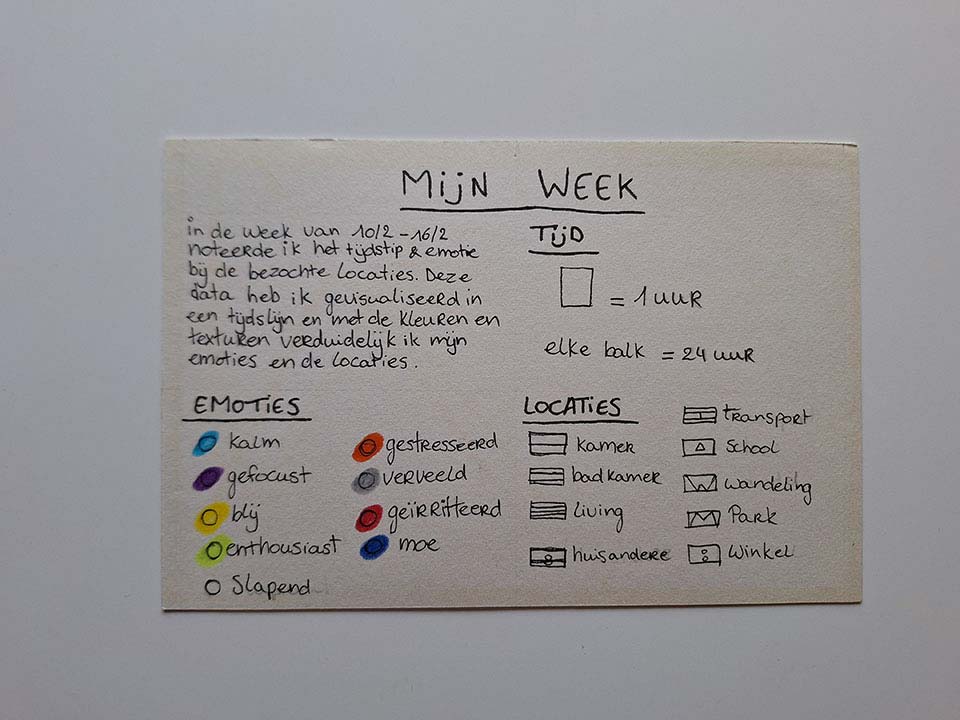 Mijn WEEK
in de week van 10/2 - 16/2
noteerde ik het tijdstip & emotie
bij de bezochte locaties. Deze
data heb ik gevisualiseerd in
een tijdslijn en met de kleuren en
texturen verduidelijk ik mijn
emoties en de locaties.
TijD
= 1 UUR
elke balk = 24 UUR
EMOTIES
kalm
gefocust
blij
enthousiast
Slapend
gestresseerd
verveeld
geïrriteerd
moe
LOCATIES
kamer
badkamer
living
huis andere
transport
School
wandeling
Park
Winkel